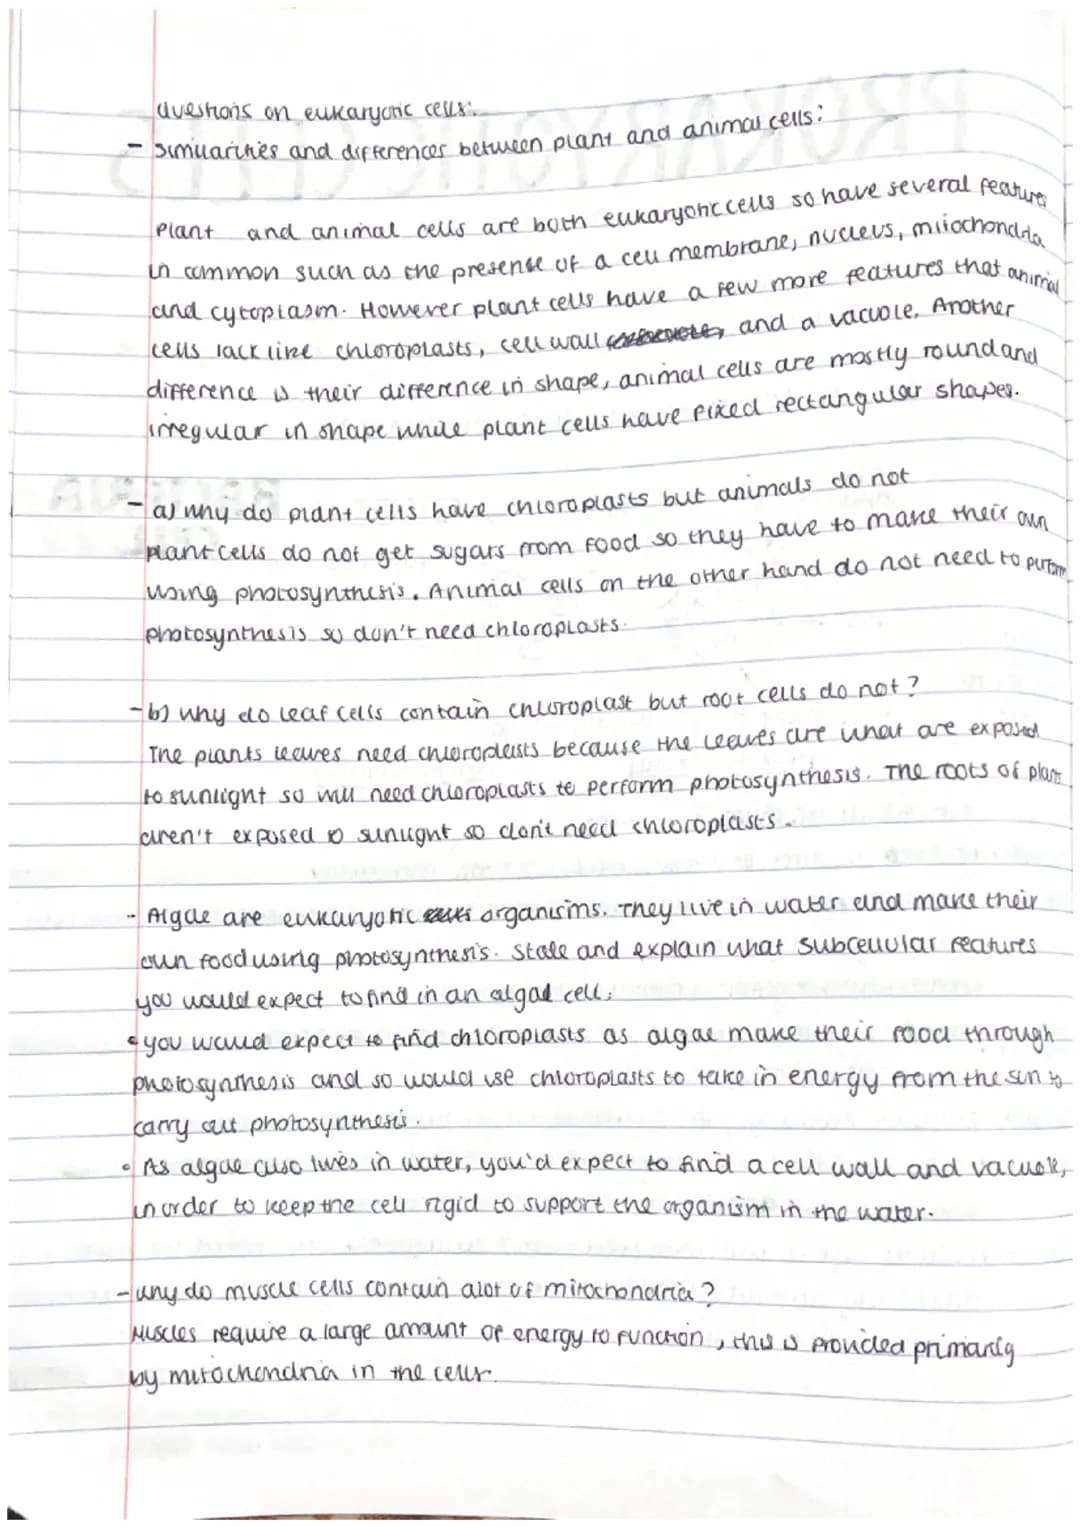 Questions on eukaryotic cells:
- Similarities and differences between plant and animal cells:
Plant and animal cells are both eukaryotic cells so have several features
in common such as the presense of a cell membrane, nucleus, mitochondria
and cytoplasm. However plant cells have a few more features that animal
cells lack like chloroplasts, cell wall and a vacuole. Another
difference is their difference in shape, animal cells are mostly round and
irregular in shape while plant cells have fixed rectangular shapes.
- a) why do plant cells have chloroplasts but animals do not
plant cells do not get sugars from food so they have to make their own
using photosynthesis. Animal cells on the other hand do not need to perform
photosynthesis so don't need chloroplasts.
- b) why do leaf cells contain chloroplast but root cells do not?
The plants leaves need chloroplasts because the leaves are what are exposed
to sunlight so will need chloroplasts to perform photosynthesis. The roots of plant
aren't exposed to sunlight so don't need chloroplasts.
- Algae are eukaryotic organisims. They live in water and make their
own food using photosynthesis. State and explain what subcellular features
you would expect to find in an algal cell:
• you would expect to find chloroplasts as algae make their food through
photosynthesis and so would use chloroplasts to take in energy from the sun to
carry out photosynthesis.
• As algae also lives in water, you'd expect to find a cell wall and vacuole,
in order to keep the cell rigid to support the organism in the water.
- why do muscle cells contain alot of mitochondria?
Muscles require a large amount of energy to function, this is provided primarily
by mitochondria in the cells.